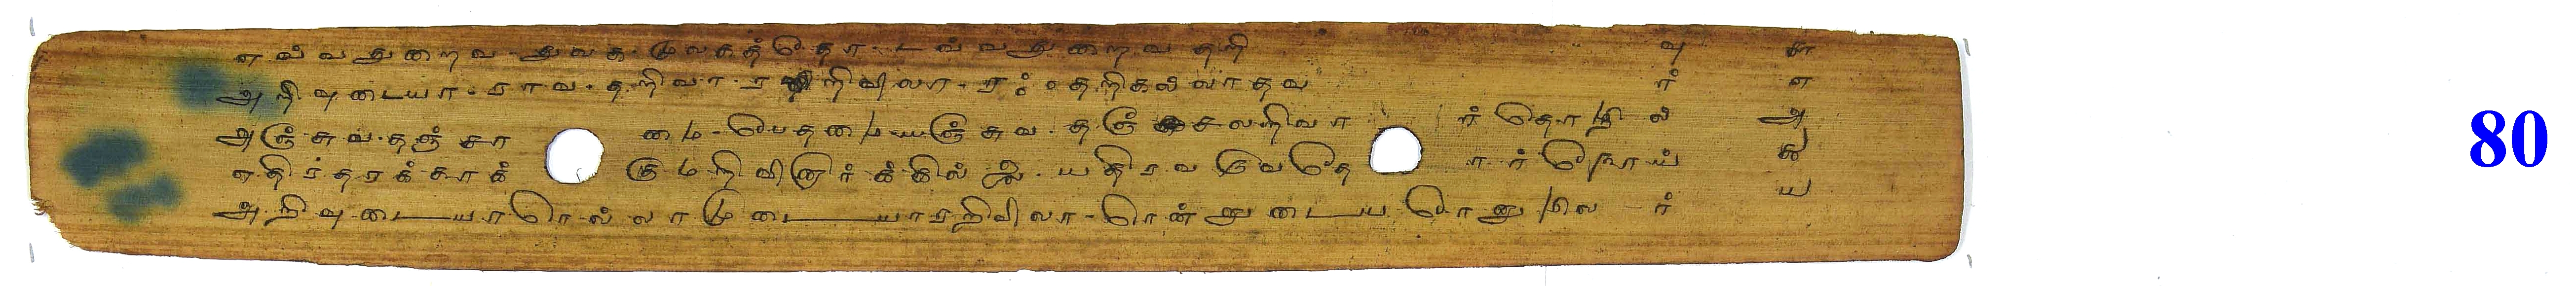 எவ்வதுறைவ - துலக - முலகத்தோ - டவ்வதுறைவ தறி வு ௬
அறிவுடையா - ராவ - தறிவா - ரறிவிலா - ரஃதறிகல்லாதவ ர் ௭
அஞ்சுவ - தஞ்சா மை - பேதமை - யஞ்சுவ - தஞ்சலறிவா ர் தொழில் ௮
எதிரதாக்காக் குமறிவினார்க்கில்லை - யதிரவருவதோ ர் நோய் ௯
அறிவுடையாரெல்லாமுடையாரறிவிலா - ரென்னுடைய - ரேனுமில - ர் ௰
80